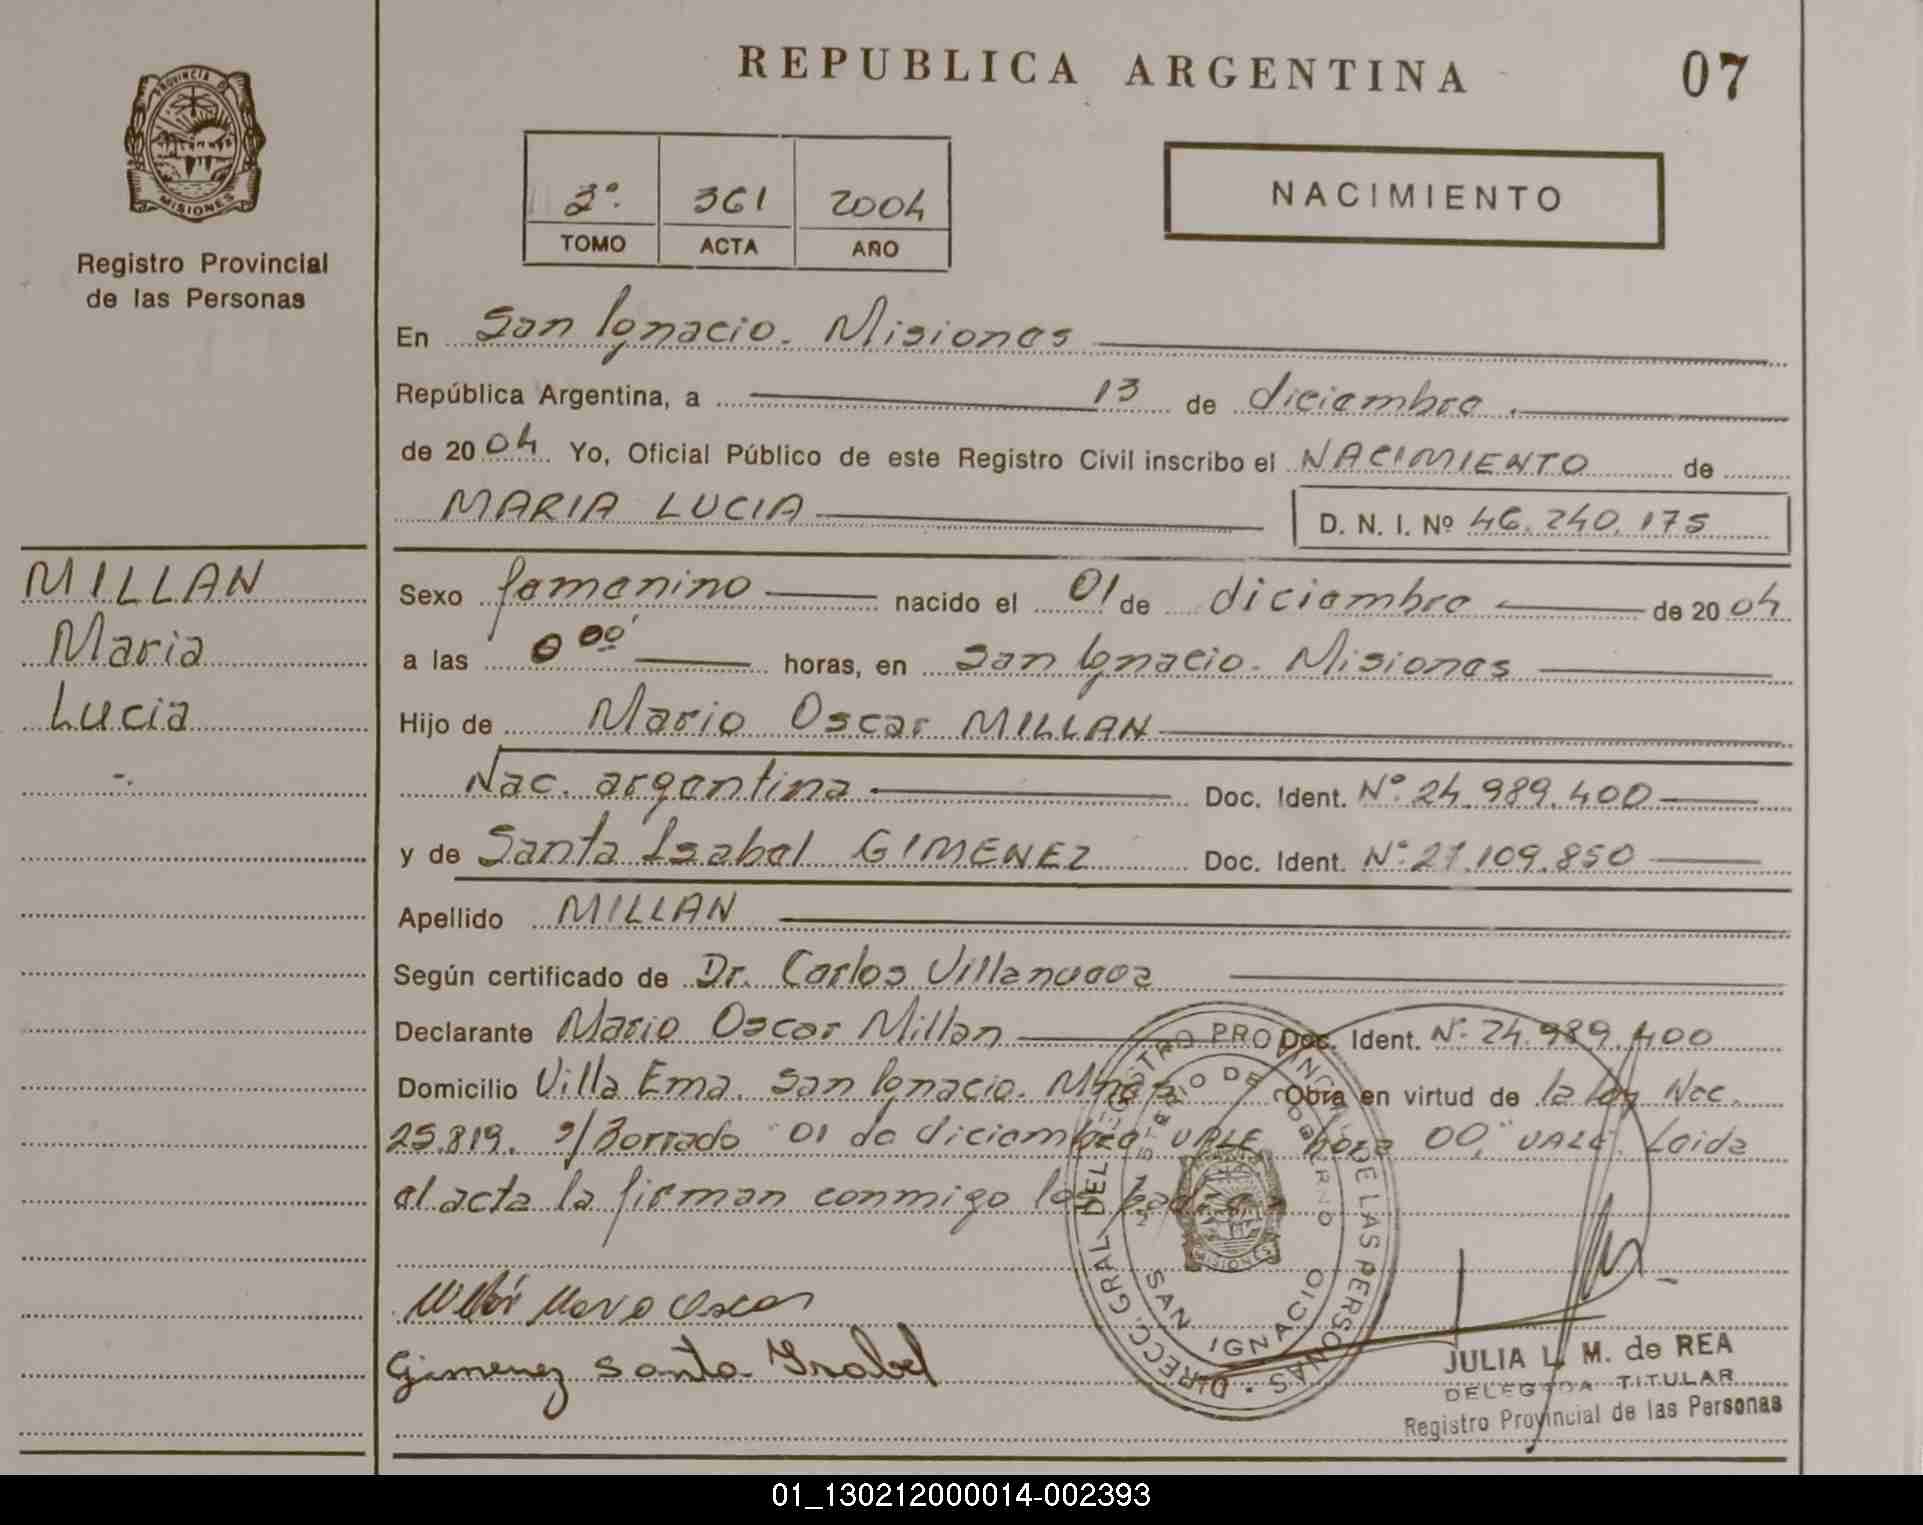 REPUBLICA ARGENTINA
07
PROVINCIA DE
MISIONES
Registro Provincial
de las Personas
2º. 361 2004
TOMO ACTA AÑO
NACIMIENTO
En San Ignacio. Misiones
República Argentina, a 13 de diciembre.
de 2004 Yo, Oficial Público de este Registro Civil inscribo el NACIMIENTO de
MARIA LUCIA D. N. I. Nº 46.240.175
MILLAN
Maria
Lucia
Sexo femenino nacido el 01 de diciembre de 2004
a las 0 00' horas, en San Ignacio. Misiones
Hijo de Mario Oscar MILLAN
Nac. argentina Doc. Ident. Nº. 24.989.400
y de Santa Isabel GIMENEZ Doc. Ident. Nº. 27.109.850
Apellido MILLAN
Según certificado de Dr. Carlos Villanueva
Declarante Mario Oscar Millan Doc. Ident. Nº 24.989.400
Domicilio Villa Ema. San Ignacio. Mnes. Obra en virtud de la ley Nac.
25.819. s/Borrado "01 de diciembre" VALE, hora 00," VALE. Leida
el acta la firman conmigo los padres
Millán Mario Oscar
Gimenez Santa Isabel
DIRECC. GRAL. DEL REGISTRO PROVINCIAL DE LAS PERSONAS
MINISTERIO DE GOBIERNO
SAN IGNACIO
JULIA L. M. de REA
DELEGADA TITULAR
Registro Provincial de las Personas
01_130212000014-002393